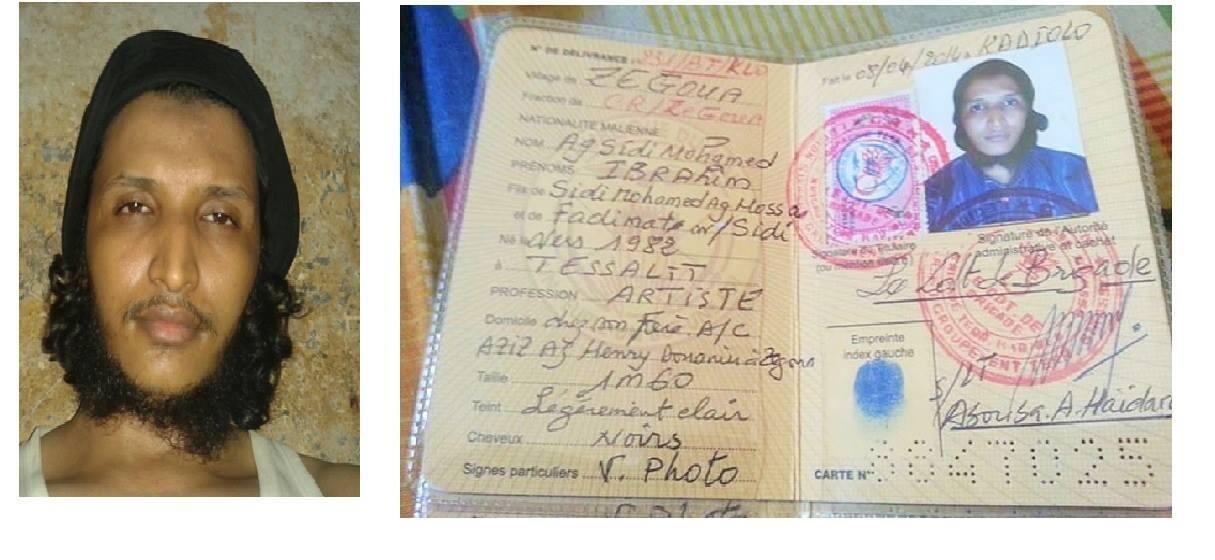 N° DE DÉLIVRANCE 251/AT/KLO
Village de ZEGOUA
Fraction de CR/ZEGOUA
NATIONALITÉ MALIENNE
NOM Ag Sidi Mohamed
PRÉNOMS IBRAHim
Fils de Sidi Mohamed Ag Mossa
et de Fadimata w/Sidi
Né Vers 1982
à TESSALIT
PROFESSION ARTISTE
Domicile chez son frère A/C
AZIZ Ag Henry Douanier à Zégoua
Taille 1m60
Teint Légèrement clair
Cheveux Noirs
Signes particuliers V. Photo
Fait le 08/04/2014 à KADIOLO
Signature du Titulaire
(ou mention
Signature de l'Autorité
administrative et cachet
Le Cdt de Brigade
Empreinte
index gauche
S/LT
Abouba. A. Haïdara
CARTE N° 8041025